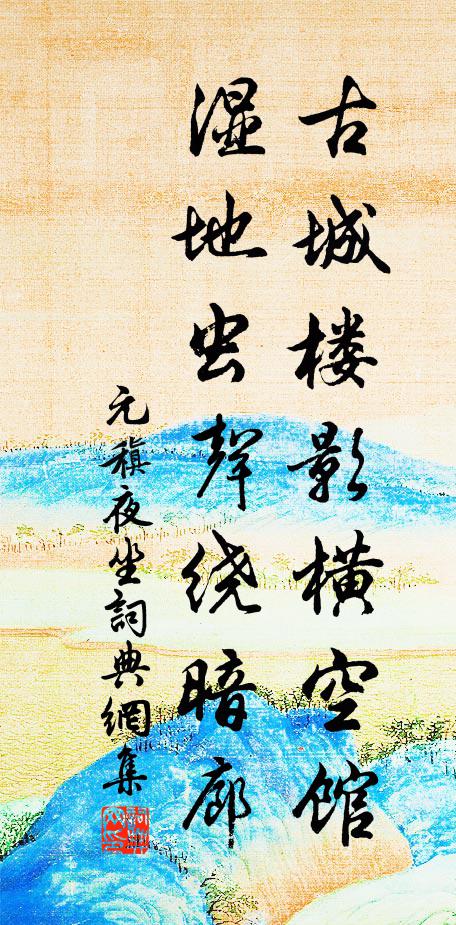 古城楼影横空馆
湿地虫聲绕暗廊
元稹夜坐詞典網集